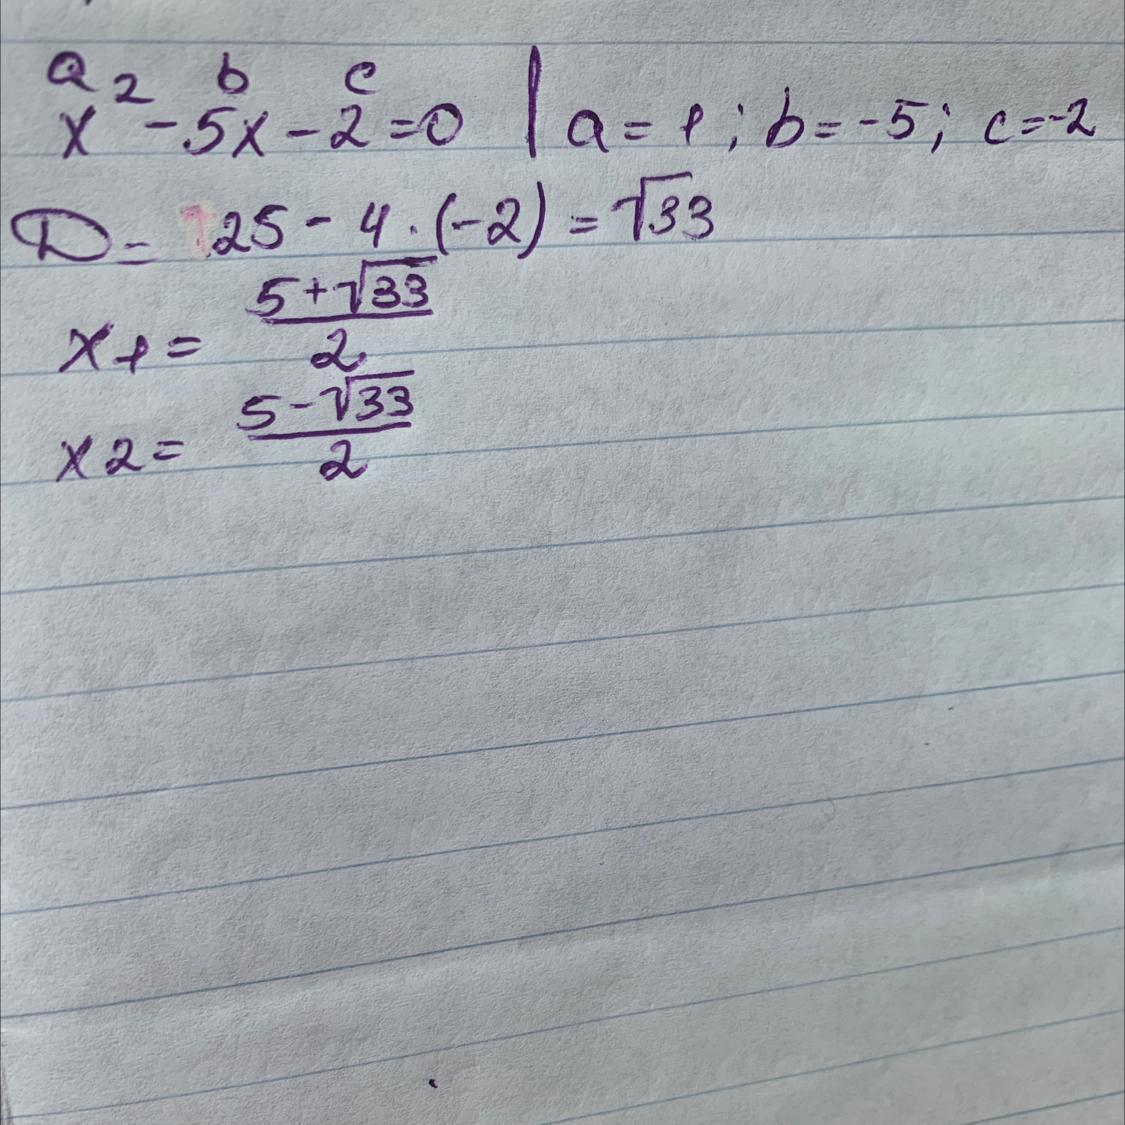 a b c
x² - 5x - 2 = 0 | a = 1; b = -5; c = -2
D = 25 - 4 · (-2) = √33
x1 = (5+√33)/2
x2 = (5-√33)/2